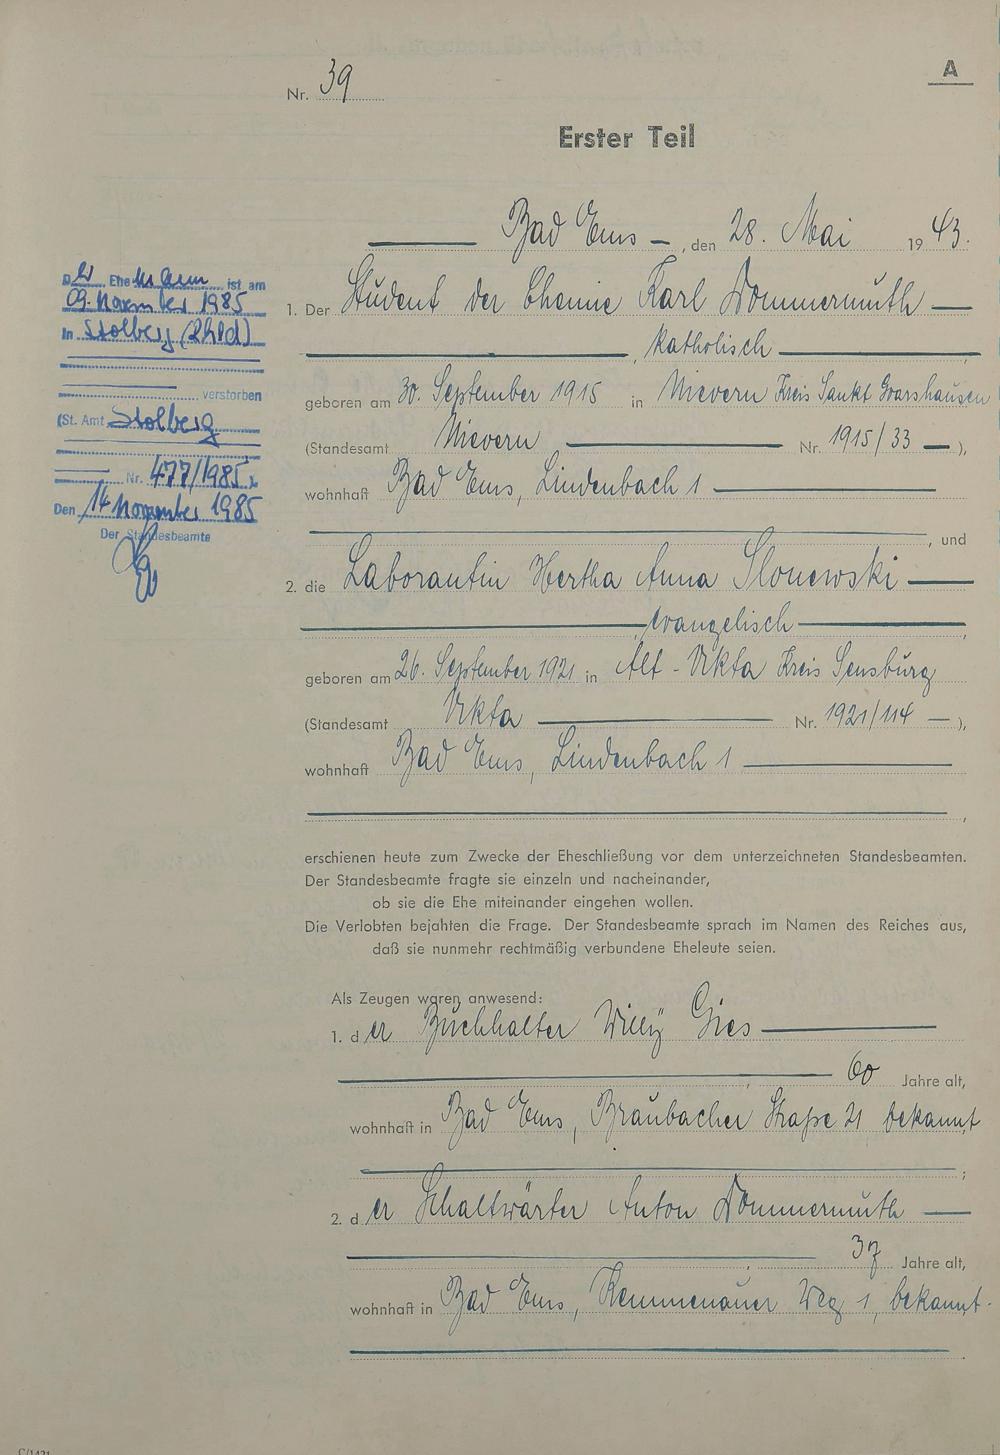 A
Nr. 39
Erster Teil
Bad Ems, den 28. Mai 1943.
1. Der Student der Chemie Karl Dommermuth
, katholisch
geboren am 30. September 1915 in Nievern Kreis Sankt Goarshausen
(Standesamt Nievern Nr. 1915/33 ),
wohnhaft Bad Ems, Lindenbach 1
, und
2. die Laborantin Hertha Anna Slonewski
, evangelisch ,
geboren am 26. September 1921 in Alt-Ukta Kreis Sensburg
(Standesamt Ukta Nr. 1921/114 ),
wohnhaft Bad Ems, Lindenbach 1
,
erschienen heute zum Zwecke der Eheschließung vor dem unterzeichneten Standesbeamten.
Der Standesbeamte fragte sie einzeln und nacheinander,
ob sie die Ehe miteinander eingehen wollen.
Die Verlobten bejahten die Frage. Der Standesbeamte sprach im Namen des Reiches aus,
daß sie nunmehr rechtmäßig verbundene Eheleute seien.
Als Zeugen waren anwesend:
1. der Buchhalter Willy Gies
, 60 Jahre alt,
wohnhaft in Bad Ems, Braubacher Straße 21 bekannt
;
2. der Schaltwärter Anton Dommermuth
, 37 Jahre alt,
wohnhaft in Bad Ems, Kemmenauer Weg 1, bekannt.
Der Ehemann ist am
09. November 1985
in Stolberg (Rhld)
verstorben
(St. Amt Stolberg
Nr. 477/1985
Den 14 November 1985
Der Standesbeamte
C/1421